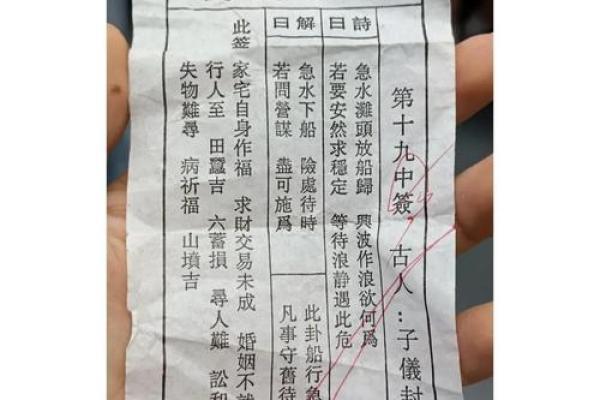 第十九中簽 古人:子儀封
詩曰
急水灘頭放船歸 興波作浪欲何爲
若要安然求穩定 等待浪靜遇此危
解曰
急水下船 險處待時
若問營謀 盡可施爲
此卦船行急
凡事守舊待
此签
家宅自身作福 求財交易未成 婚姻不就
行人至 田蠶吉 六畜損 尋人難 訟和
失物難尋 病祈福 山墳吉